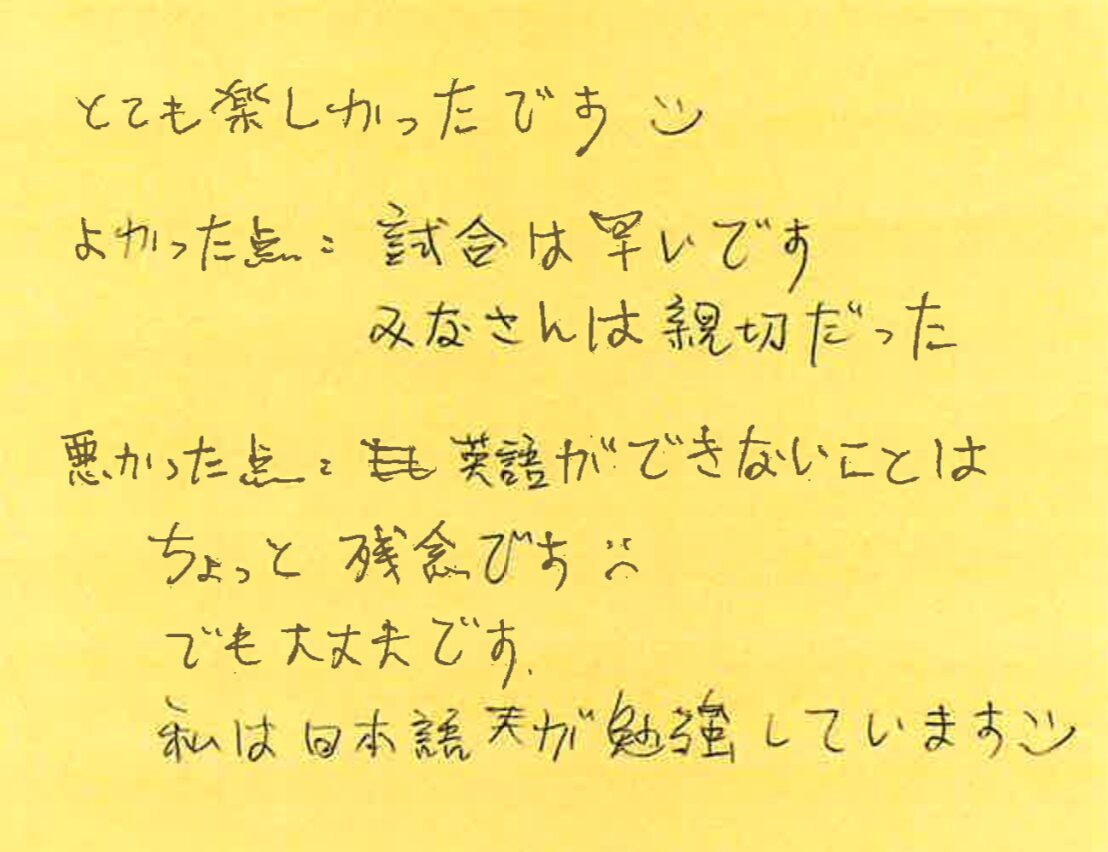 とても楽しかったです
よかった点: 試合は早いです
みなさんは親切だった
悪かった点: 英語ができないことは
ちょっと残念です
でも大丈夫です.
私は日本語が勉強しています